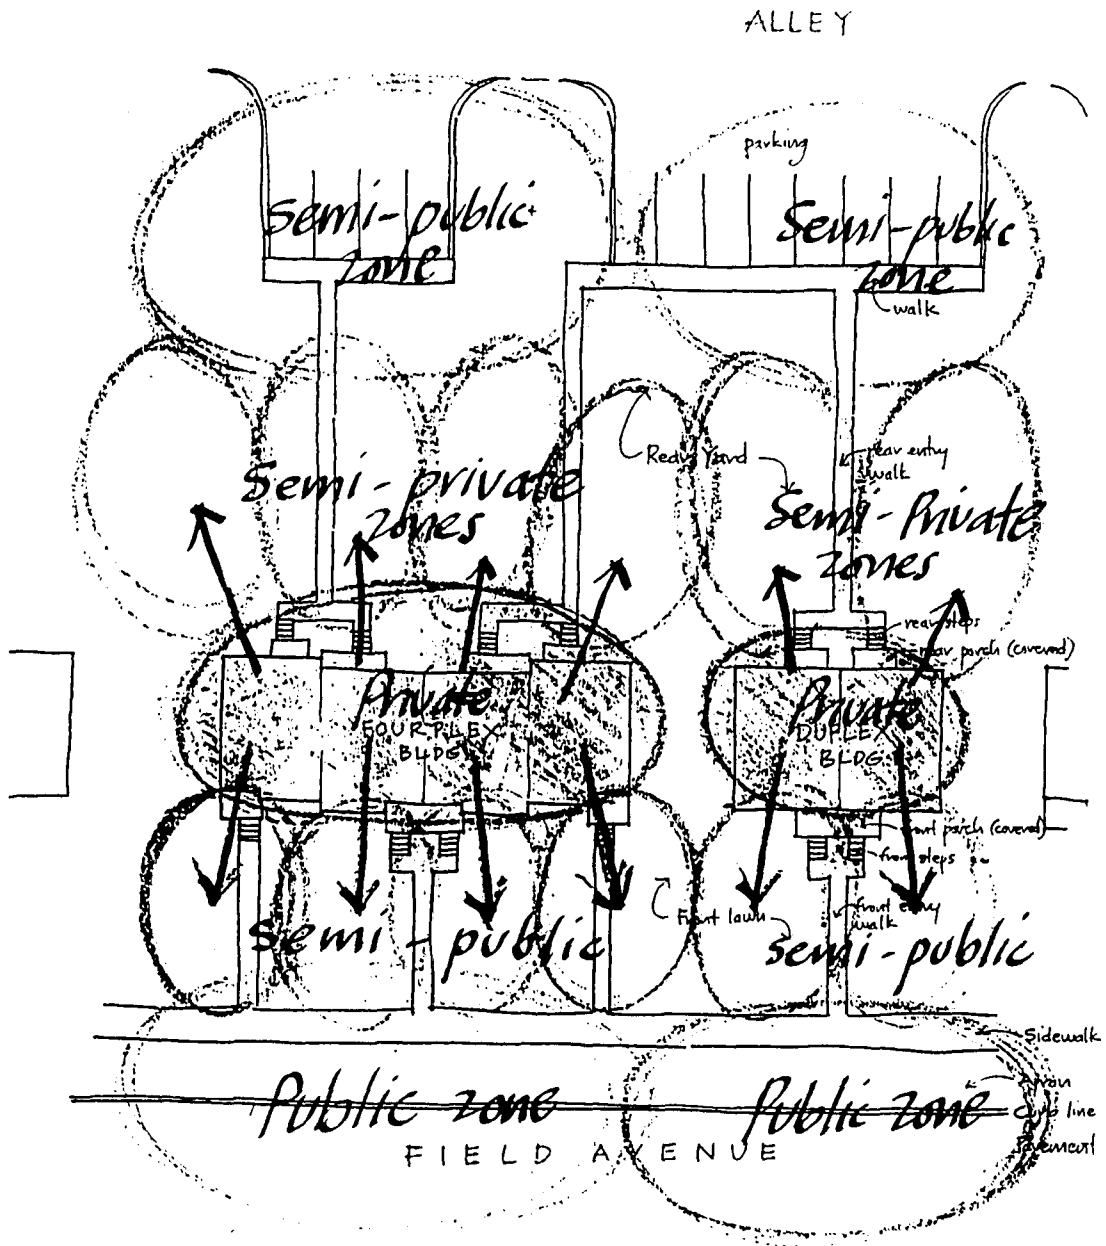 ALLEY
parking
Semi-public
zone
Semi-public
zone
walk
Rear Yard
rear entry
walk
Semi-private
zones
Semi-Private
zones
rear steps
rear porch (covered)
Private
FOURPLEX
BLDG.
Private
DUPLEX
BLDG.
front porch (covered)
front steps
Front lawn
front entry
walk
Semi-public
semi-public
Sidewalk
Public zone
Public zone
Apron
Curb line
pavement
FIELD AVENUE